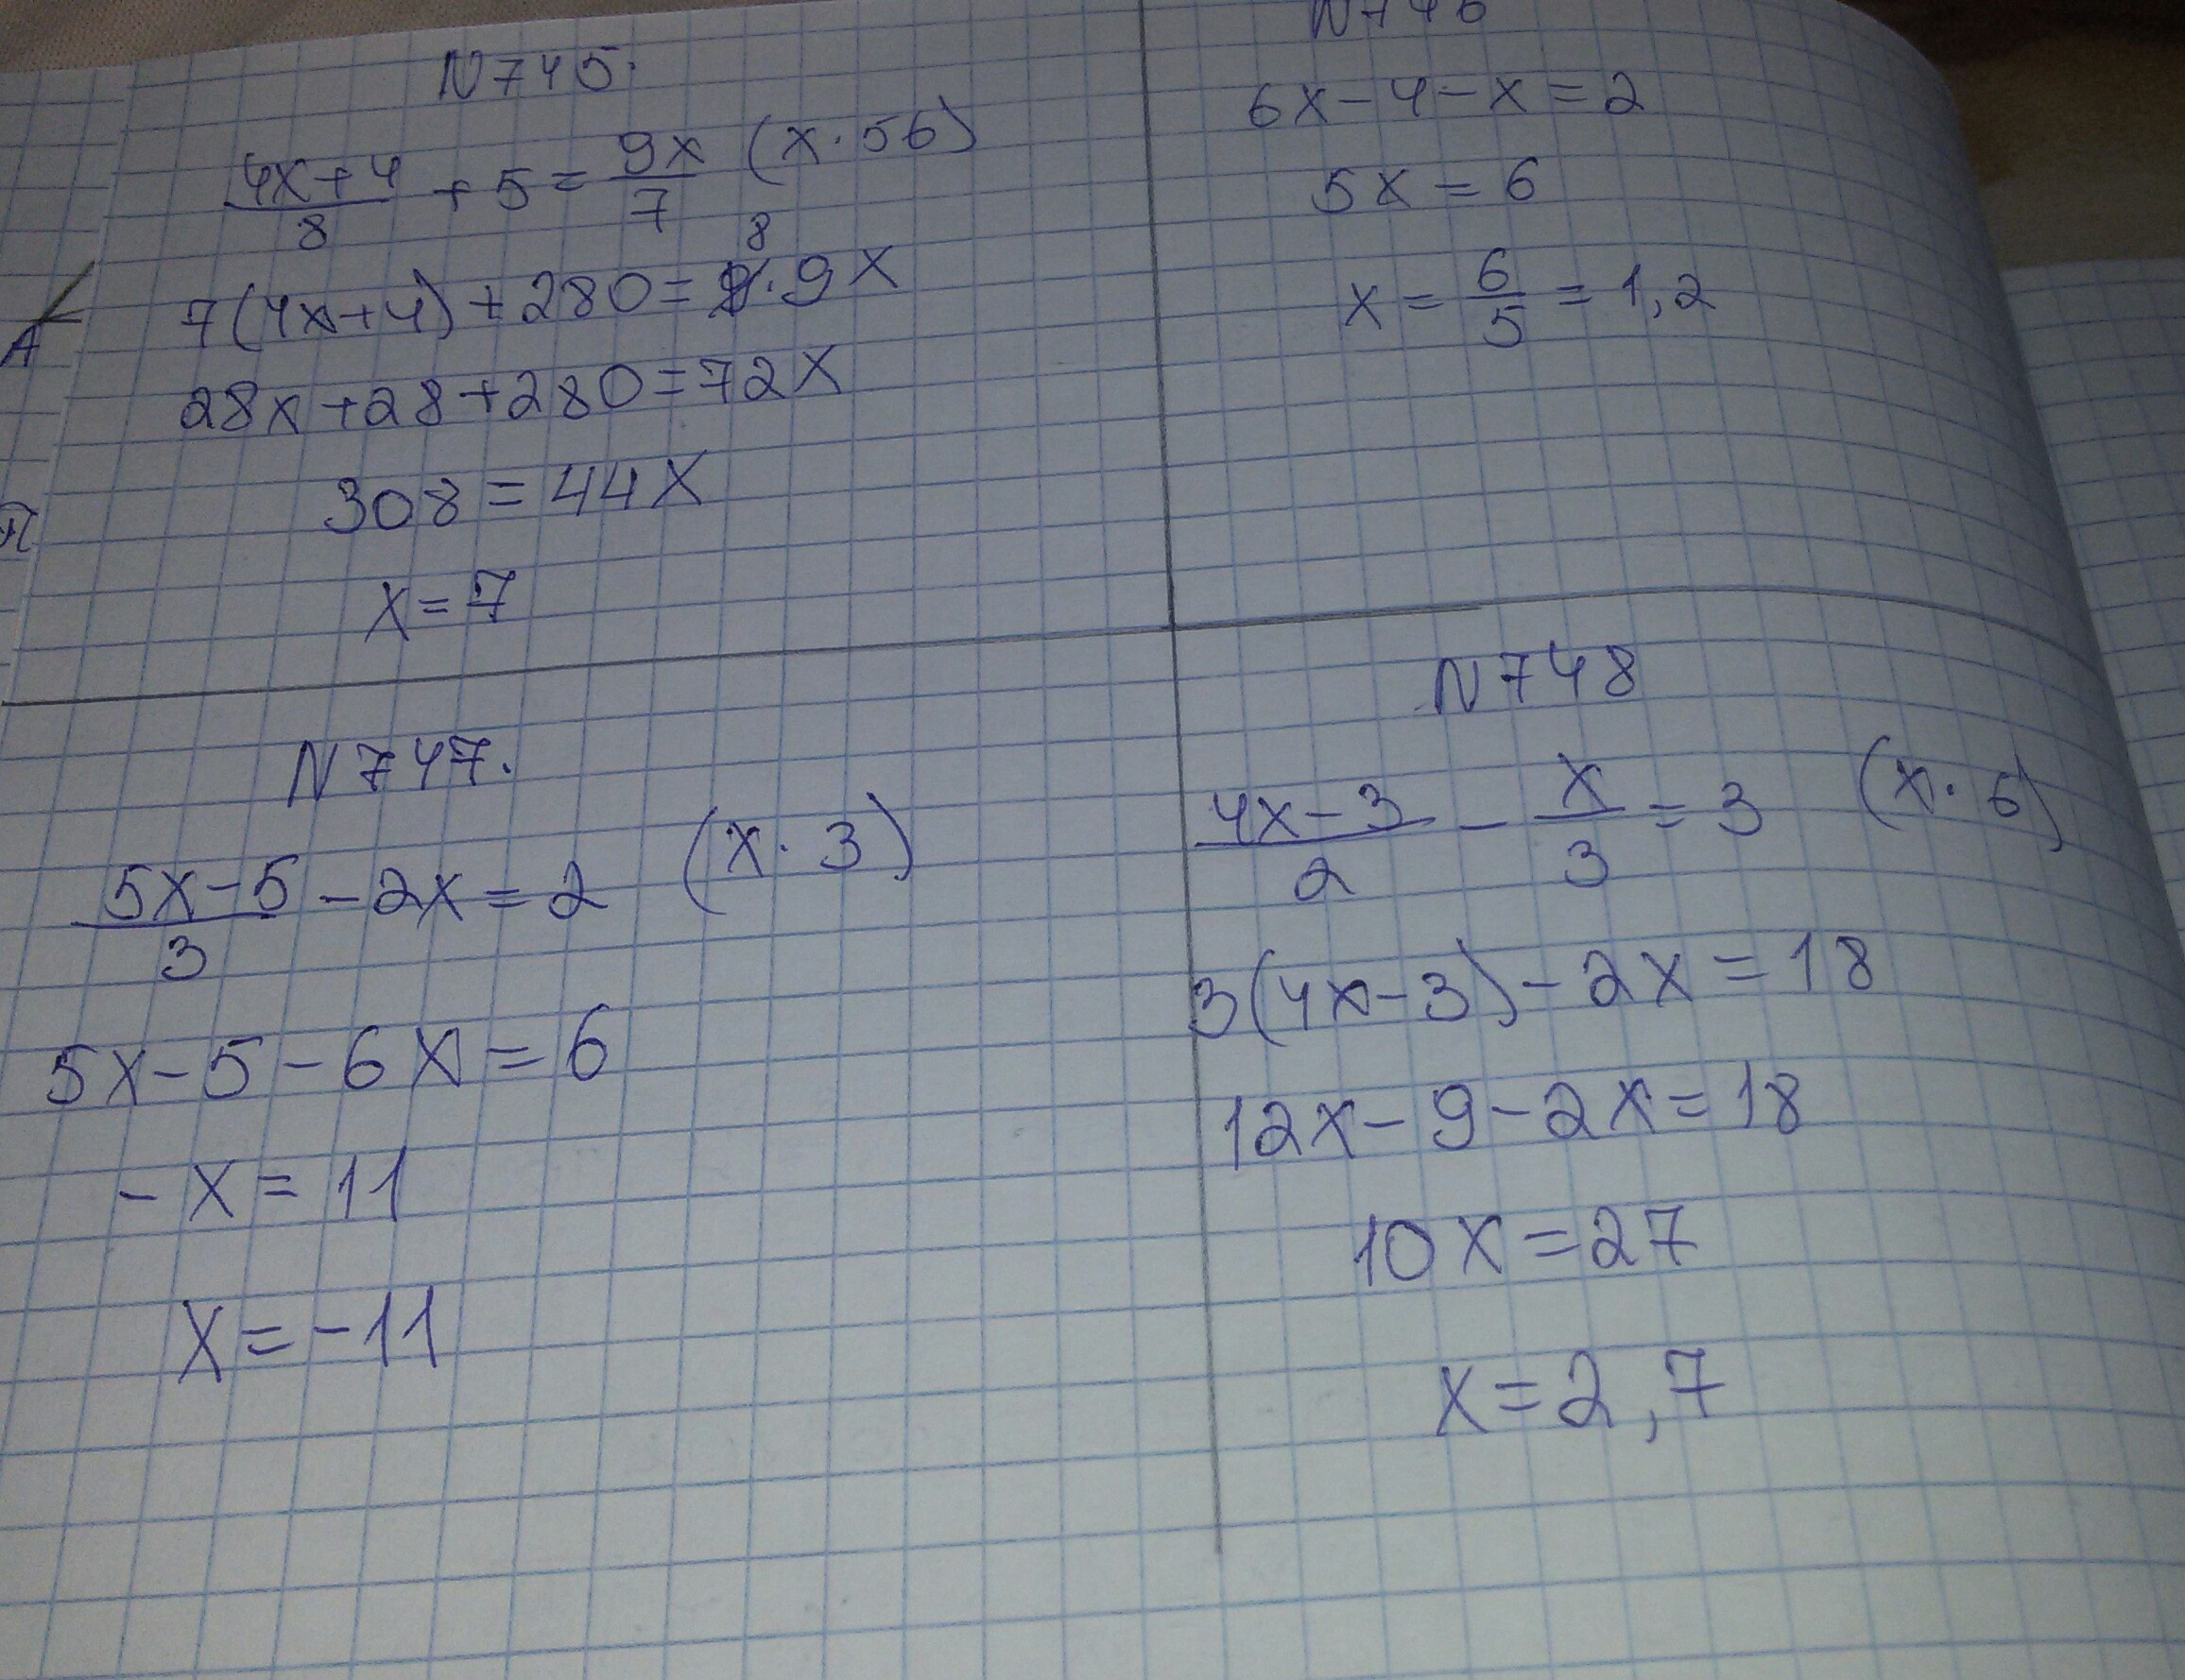 N745.
(4x+4)/8 + 5 = 9x/7 (x·56)
8
7(4x+4)+280=8·9x
28x+28+280=72x
308=44x
x=7
N746
6x-4-x=2
5x=6
x=6/5=1,2
N747.
(5x-5)/3-2x=2 (x·3)
5x-5-6x=6
-x=11
x=-11
N748
(4x-3)/2-x/3=3 (x·6)
3(4x-3)-2x=18
12x-9-2x=18
10x=27
x=2,7
А